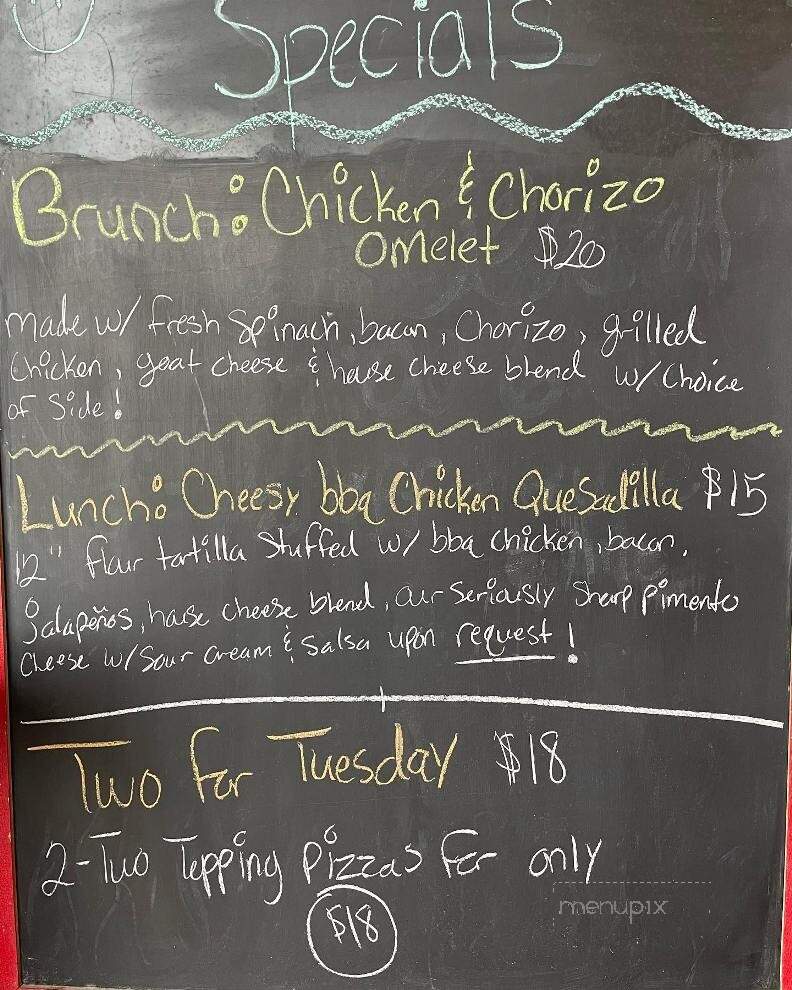 Specials
Brunch: Chicken & Chorizo
Omelet $20
made w/ fresh Spinach, bacon, Chorizo, grilled
Chicken, goat cheese & house cheese blend w/ Choice
of Side!
Lunch: Cheesy bbq Chicken Quesadilla $15
12" flour tortilla Stuffed w/ bbq chicken, bacon,
jalapeños, house cheese blend, our Seriously Sharp pimento
Cheese w/ Sour cream & Salsa upon request!
Two For Tuesday $18
2-Two Topping Pizzas For only
$18
menupix